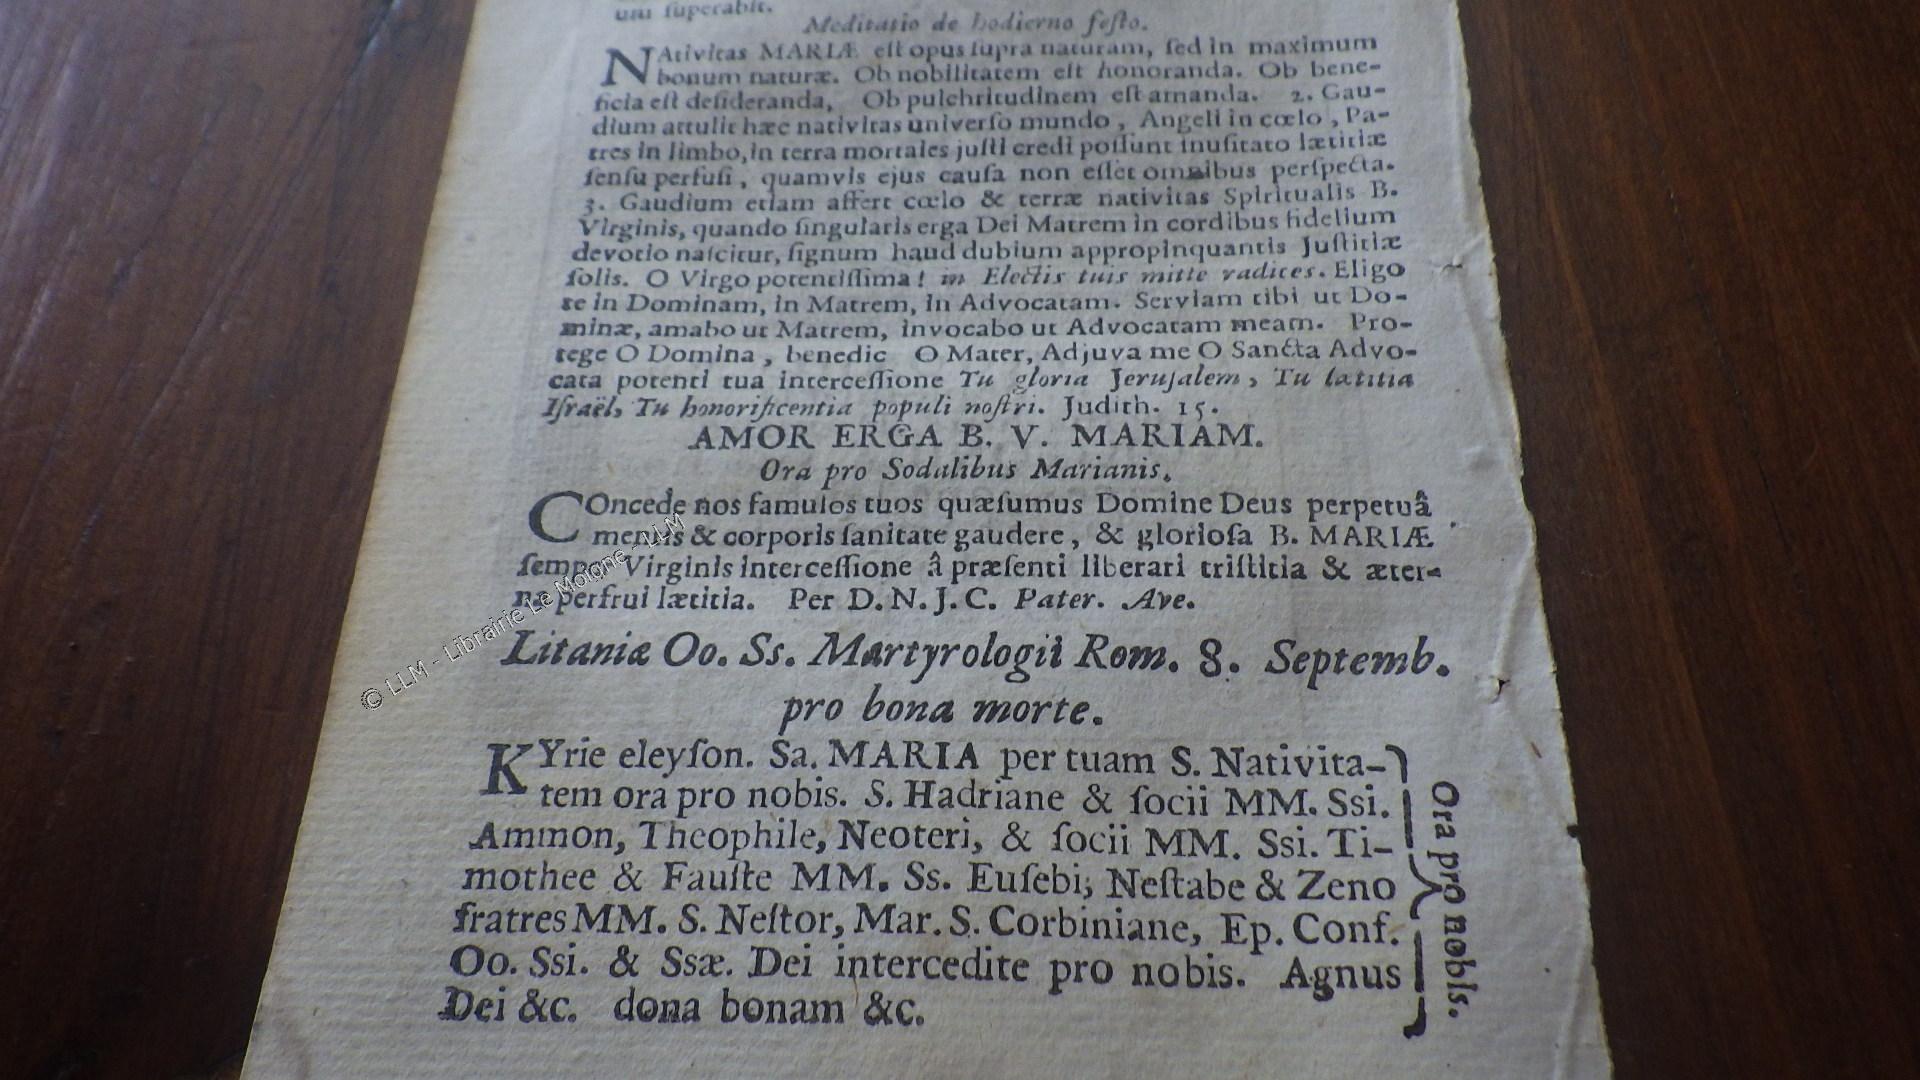 um ſuperabit.
Meditatio de hodierno feſto.
NAtivitas MARIÆ eſt opus ſupra naturam, ſed in maximum
bonum naturæ. Ob nobilitatem eſt honoranda. Ob bene-
ficia eſt deſideranda, Ob pulchritudinem eſt amanda. 2. Gau-
dium attulit hæc nativitas univerſo mundo, Angeli in cœlo, Pa-
tres in limbo, in terra mortales juſti credi poſſunt inuſitato lætitiæ
ſenſu perfuſi, quamvis ejus cauſa non eſſet omnibus perſpecta.
3. Gaudium etiam affert cœlo & terræ nativitas Spiritualis B.
Virginis, quando ſingularis erga Dei Matrem in cordibus fidelium
devotio naſcitur, ſignum haud dubium appropinquantis Juſtitiæ
ſolis. O Virgo potentiſſima! in Electis tuis mitte radices. Eligo
te in Dominam, in Matrem, in Advocatam. Serviam tibi ut Do-
minæ, amabo ut Matrem, invocabo ut Advocatam meam. Pro-
tege O Domina, benedic O Mater, Adjuva me O Sancta Advo-
cata potenti tua interceſſione Tu gloria Jeruſalem, Tu lætitia
Iſraël, Tu honorificentia populi noſtri. Judith. 15.
AMOR ERGA B. V. MARIAM.
Ora pro Sodalibus Marianis.
COncede nos famulos tuos quæſumus Domine Deus perpetuâ
mentis & corporis ſanitate gaudere, & glorioſa B. MARIÆ
ſemper Virginis interceſſione â præſenti liberari triſtitia & æter-
na perfrui lætitia. Per D. N. J. C. Pater. Ave.
Litaniæ Oo. Ss. Martyrologii Rom. 8. Septemb.
pro bona morte.
KYrie eleyſon. Sa. MARIA per tuam S. Nativita-
tem ora pro nobis. S. Hadriane & ſocii MM. Ssi.
Ammon, Theophile, Neoteri, & ſocii MM. Ssi. Ti-
mothee & Fauſte MM. Ss. Euſebi, Neſtabe & Zeno
fratres MM. S. Neſtor, Mar. S. Corbiniane, Ep. Conf.
Oo. Ssi. & Ssæ. Dei intercedite pro nobis. Agnus
Dei &c. dona bonam &c.
Ora pro nobis.
© LLM - Librairie Le Moigne - LLM